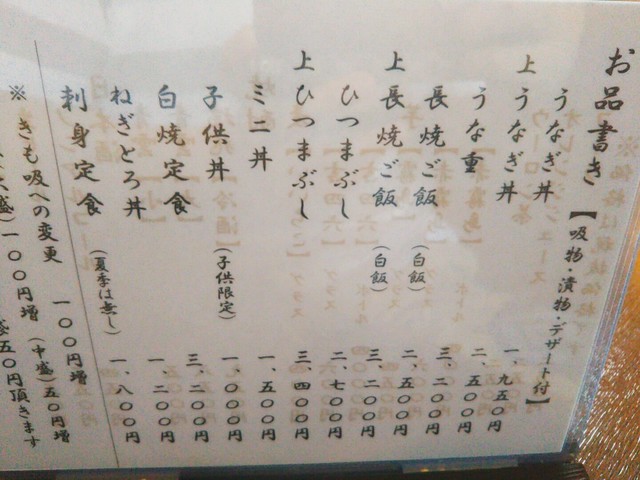 お品書き【吸物・漬物・デザート付】
うなぎ丼 一、九五〇円
上うなぎ丼 二、五〇〇円
うな重 三、二〇〇円
長焼ご飯(白飯) 二、五〇〇円
上長焼ご飯(白飯) 三、二〇〇円
ひつまぶし 二、七〇〇円
上ひつまぶし 三、四〇〇円
ミニ丼 一、五〇〇円
子供丼(子供限定) 一、〇〇〇円
白焼定食 三、二〇〇円
ねぎとろ丼(夏季は無し) 一、二〇〇円
刺身定食 一、八〇〇円
※きも吸への変更 一〇〇円増
盛)一〇〇円増 (中盛)五〇円増
五〇円頂きます